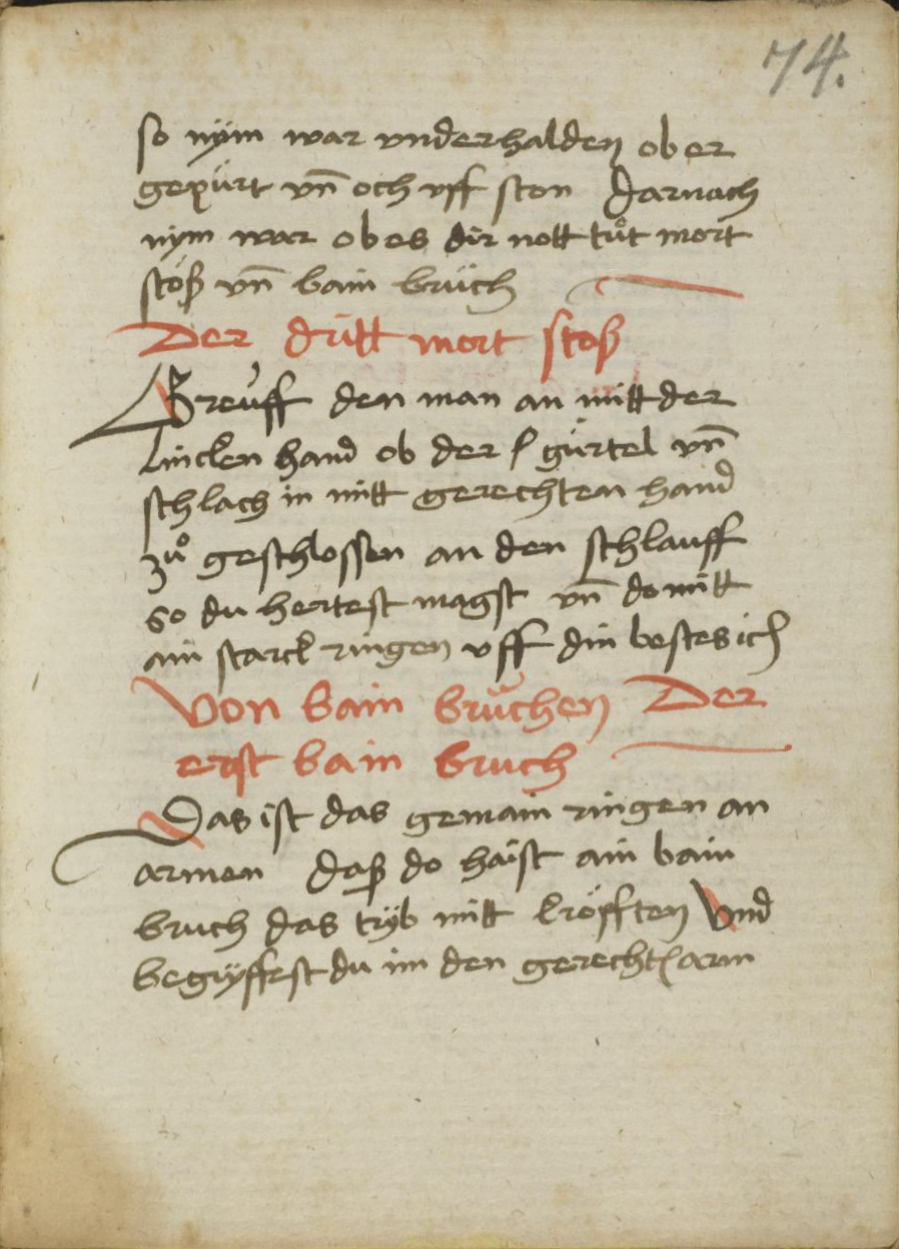 74.
so nÿm war vnderhalden ob er
gepürt vn̄ och vff ston Darnach
nÿm war ob es dir nott tůt mort
stöß vn̄ bain brüch
Der dritt mort stoß
Greuff den man an mitt der
lincken hand ob der gürtel vn̄
schlach in mitt gerechten hand
zů geschlossen an den schlauff
so du hertest magst vn̄ do mitt
ain starck ringen vff din bestes ich
Von bain brüchen Der
erst bain bruch
Das ist das gemain ringen an
armen daß do haist ain bain
bruch das trÿb mitt kröfften Vnd
begrÿffest du im den gerecht arm